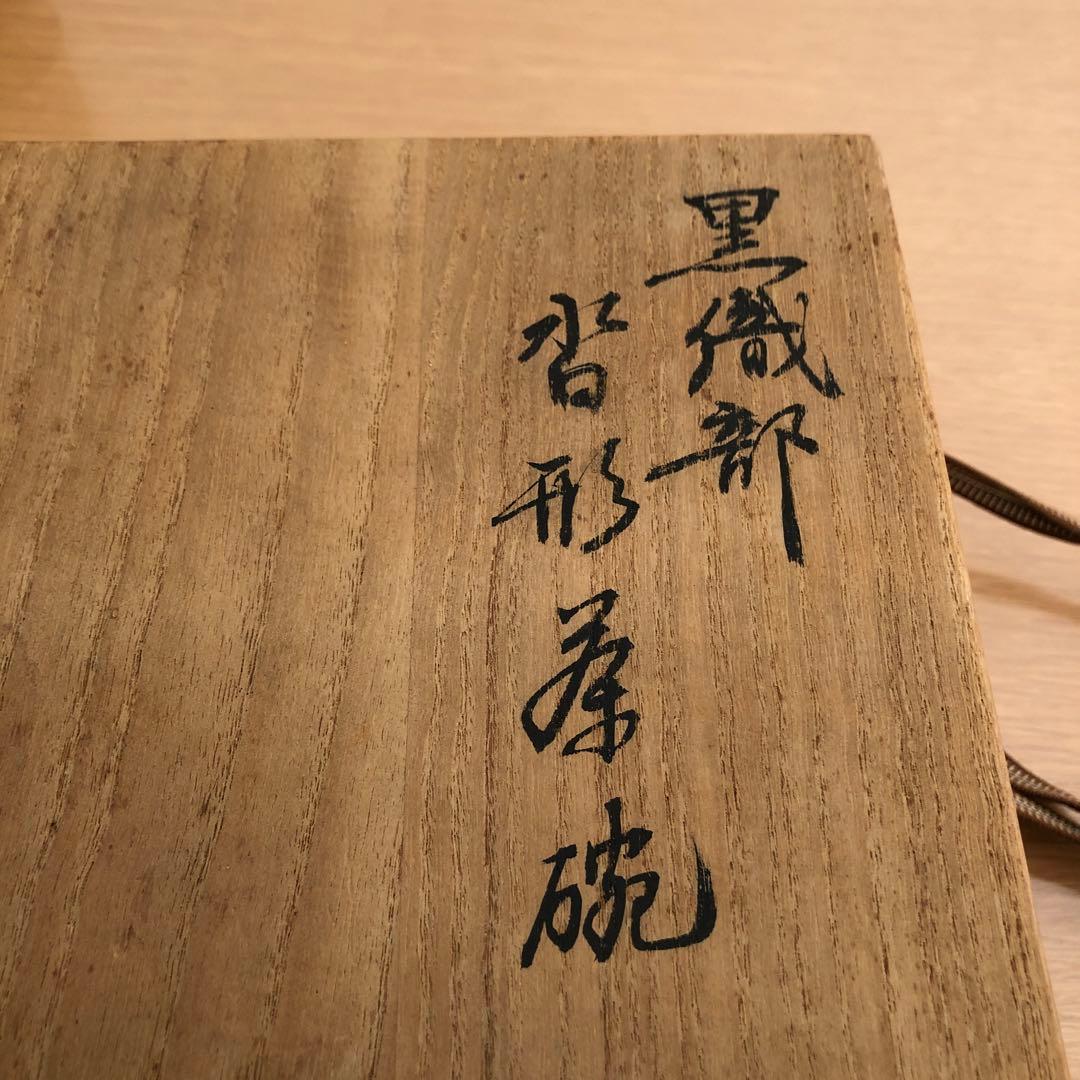 黒織部
沓形茶碗